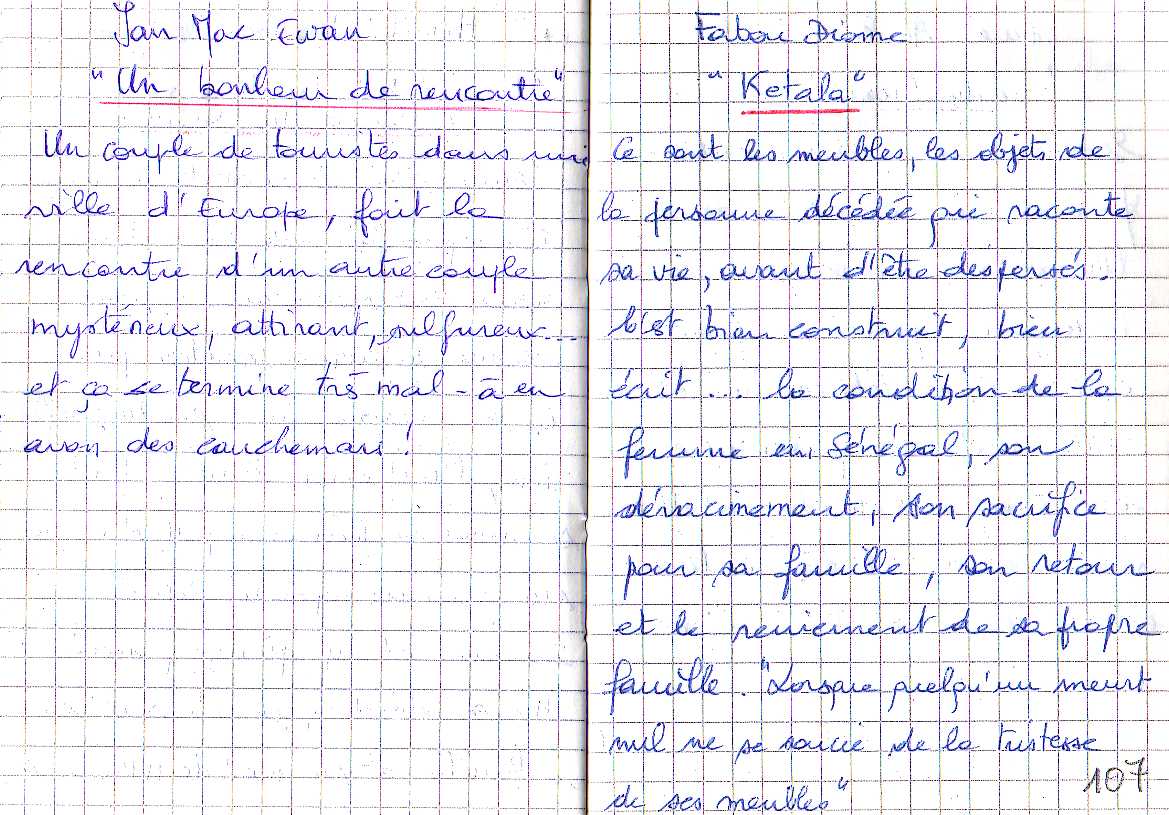 Ian Mac Ewan
"Un bonheur de rencontre"
Un couple de touristes dans une
ville d'Europe, fait la
rencontre d'un autre couple
mystérieux, attirant, sulfureux...
et ça se termine très mal - à en
avoir des cauchemars !
Fatou Diome
"Ketala"
Ce sont les meubles, les objets de
la personne décédée qui raconte
sa vie, avant d'être dispersés.
C'est bien construit, bien
écrit ... la condition de la
femme au Sénégal, son
déracinement, son sacrifice
pour sa famille, son retour
et le reniement de sa propre
famille. "Lorsque quelqu'un meurt
nul ne se soucie de la tristesse
de ses meubles"
107